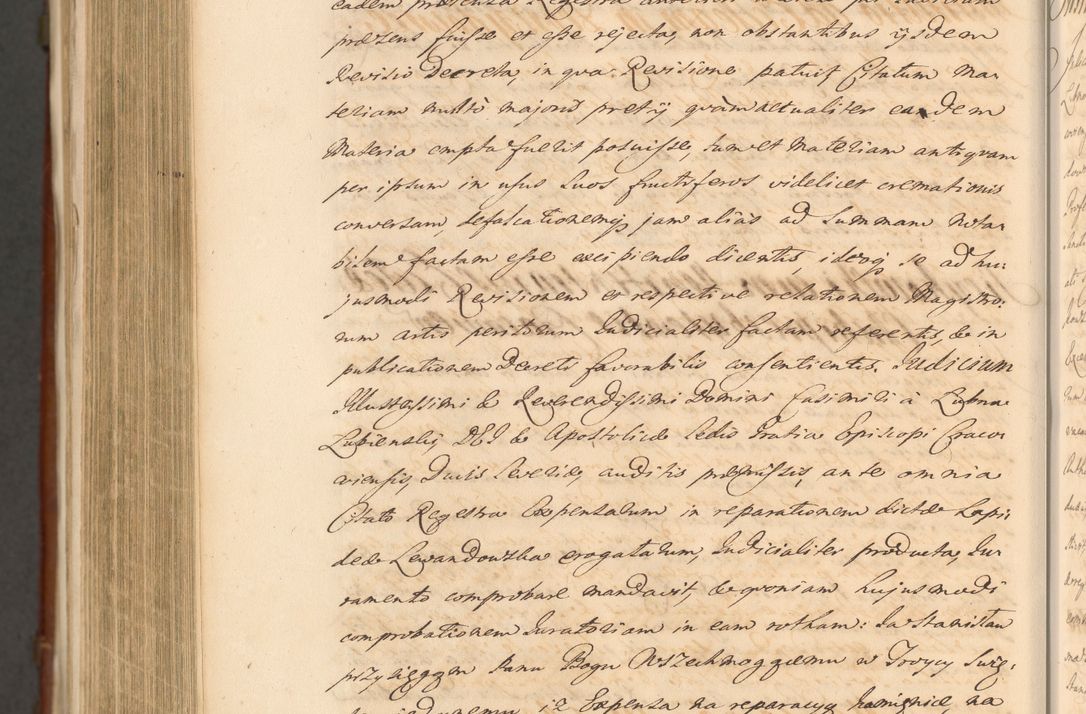 eadem præsenta Regestra
præzens fuisse et esse rejecta, non obstantibus ijsdem
Revisio Decreta, in qva Revisione patuit Citatum Ma-
teriam multò majoris pretij qvàm actualiter eandem
Materia empta fuerit posuisse, tum et Materiam antiqvam
per ipsum in usus suos fructiferos videlicet cremationis
conversam, defalcationemq, jam alias ad Summam nota-
bilem factam esse excipiendo dicentis, ideoq se ad hu-
jusmodi Revisionem et respective relationem Magistro-
rum artis peritorum Judicialiter factam referentis, & in
publicationem Decreti favorabilis consentientis. Judicium
Illustrissimi & Reverendissimi Domini Casimiri à Lubna
Lubienski, DEI & Apostolicæ Sedis Gratia Episcopi Craco-
viensis, Ducis Severiæ, auditis præmissis, ante omnia
Citato Regestra Expensarum in reparationem dictæ Lapi-
deæ Lewandowska erogatarum, Judicialiter producta, Ju-
ramento comprobare mandavit, & qvoniam hujusmodi
comprobationem Juratoriam in eam rotham: Ja Stanisław
przysięgam Panu Bogu Wszechmogącemu w Troycy Swię-
iż Expensa na reparacyą kamienice na